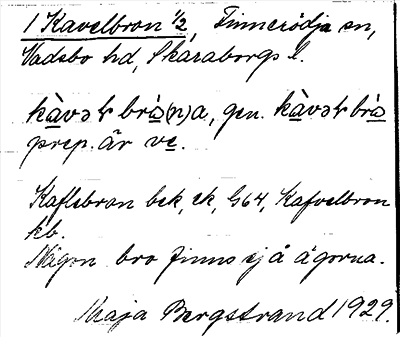 1 Kavelbron 1/2, Finnerödja sn,
Vadsbo hd, Skaraborgs l.
kàvəɫ brò(n)a, gen. kàvəɫ brò
prep. är ve.
Kaflebron bek, ek, G64, Kafvelbron
kb.
Någon bro finns ej å ägorna.
Maja Bergstrand 1929.